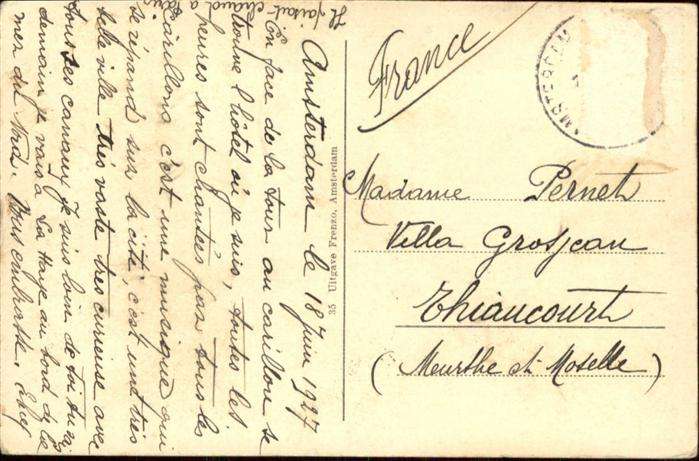 Amsterdam le 18 Juin 1927
En face de la tour au carillon se
trouve l'hôtel où je suis, toutes les
heures sont chantées par tous les
carillons c'est une musique qui
se répand sur la cité, c'est une très
belle ville très vaste très curieuse avec
tous ses canaux. Je suis loin de toi
demain je vais à La Haye au bord de la
mer du Nord. Vous embrasse.
Il faisait chaud à
35 Uitgave Frenzo, Amsterdam
France
AMSTERDAM
Madame Pernet
Villa Grosjean
Thiaucourt
(Meurthe et Moselle)